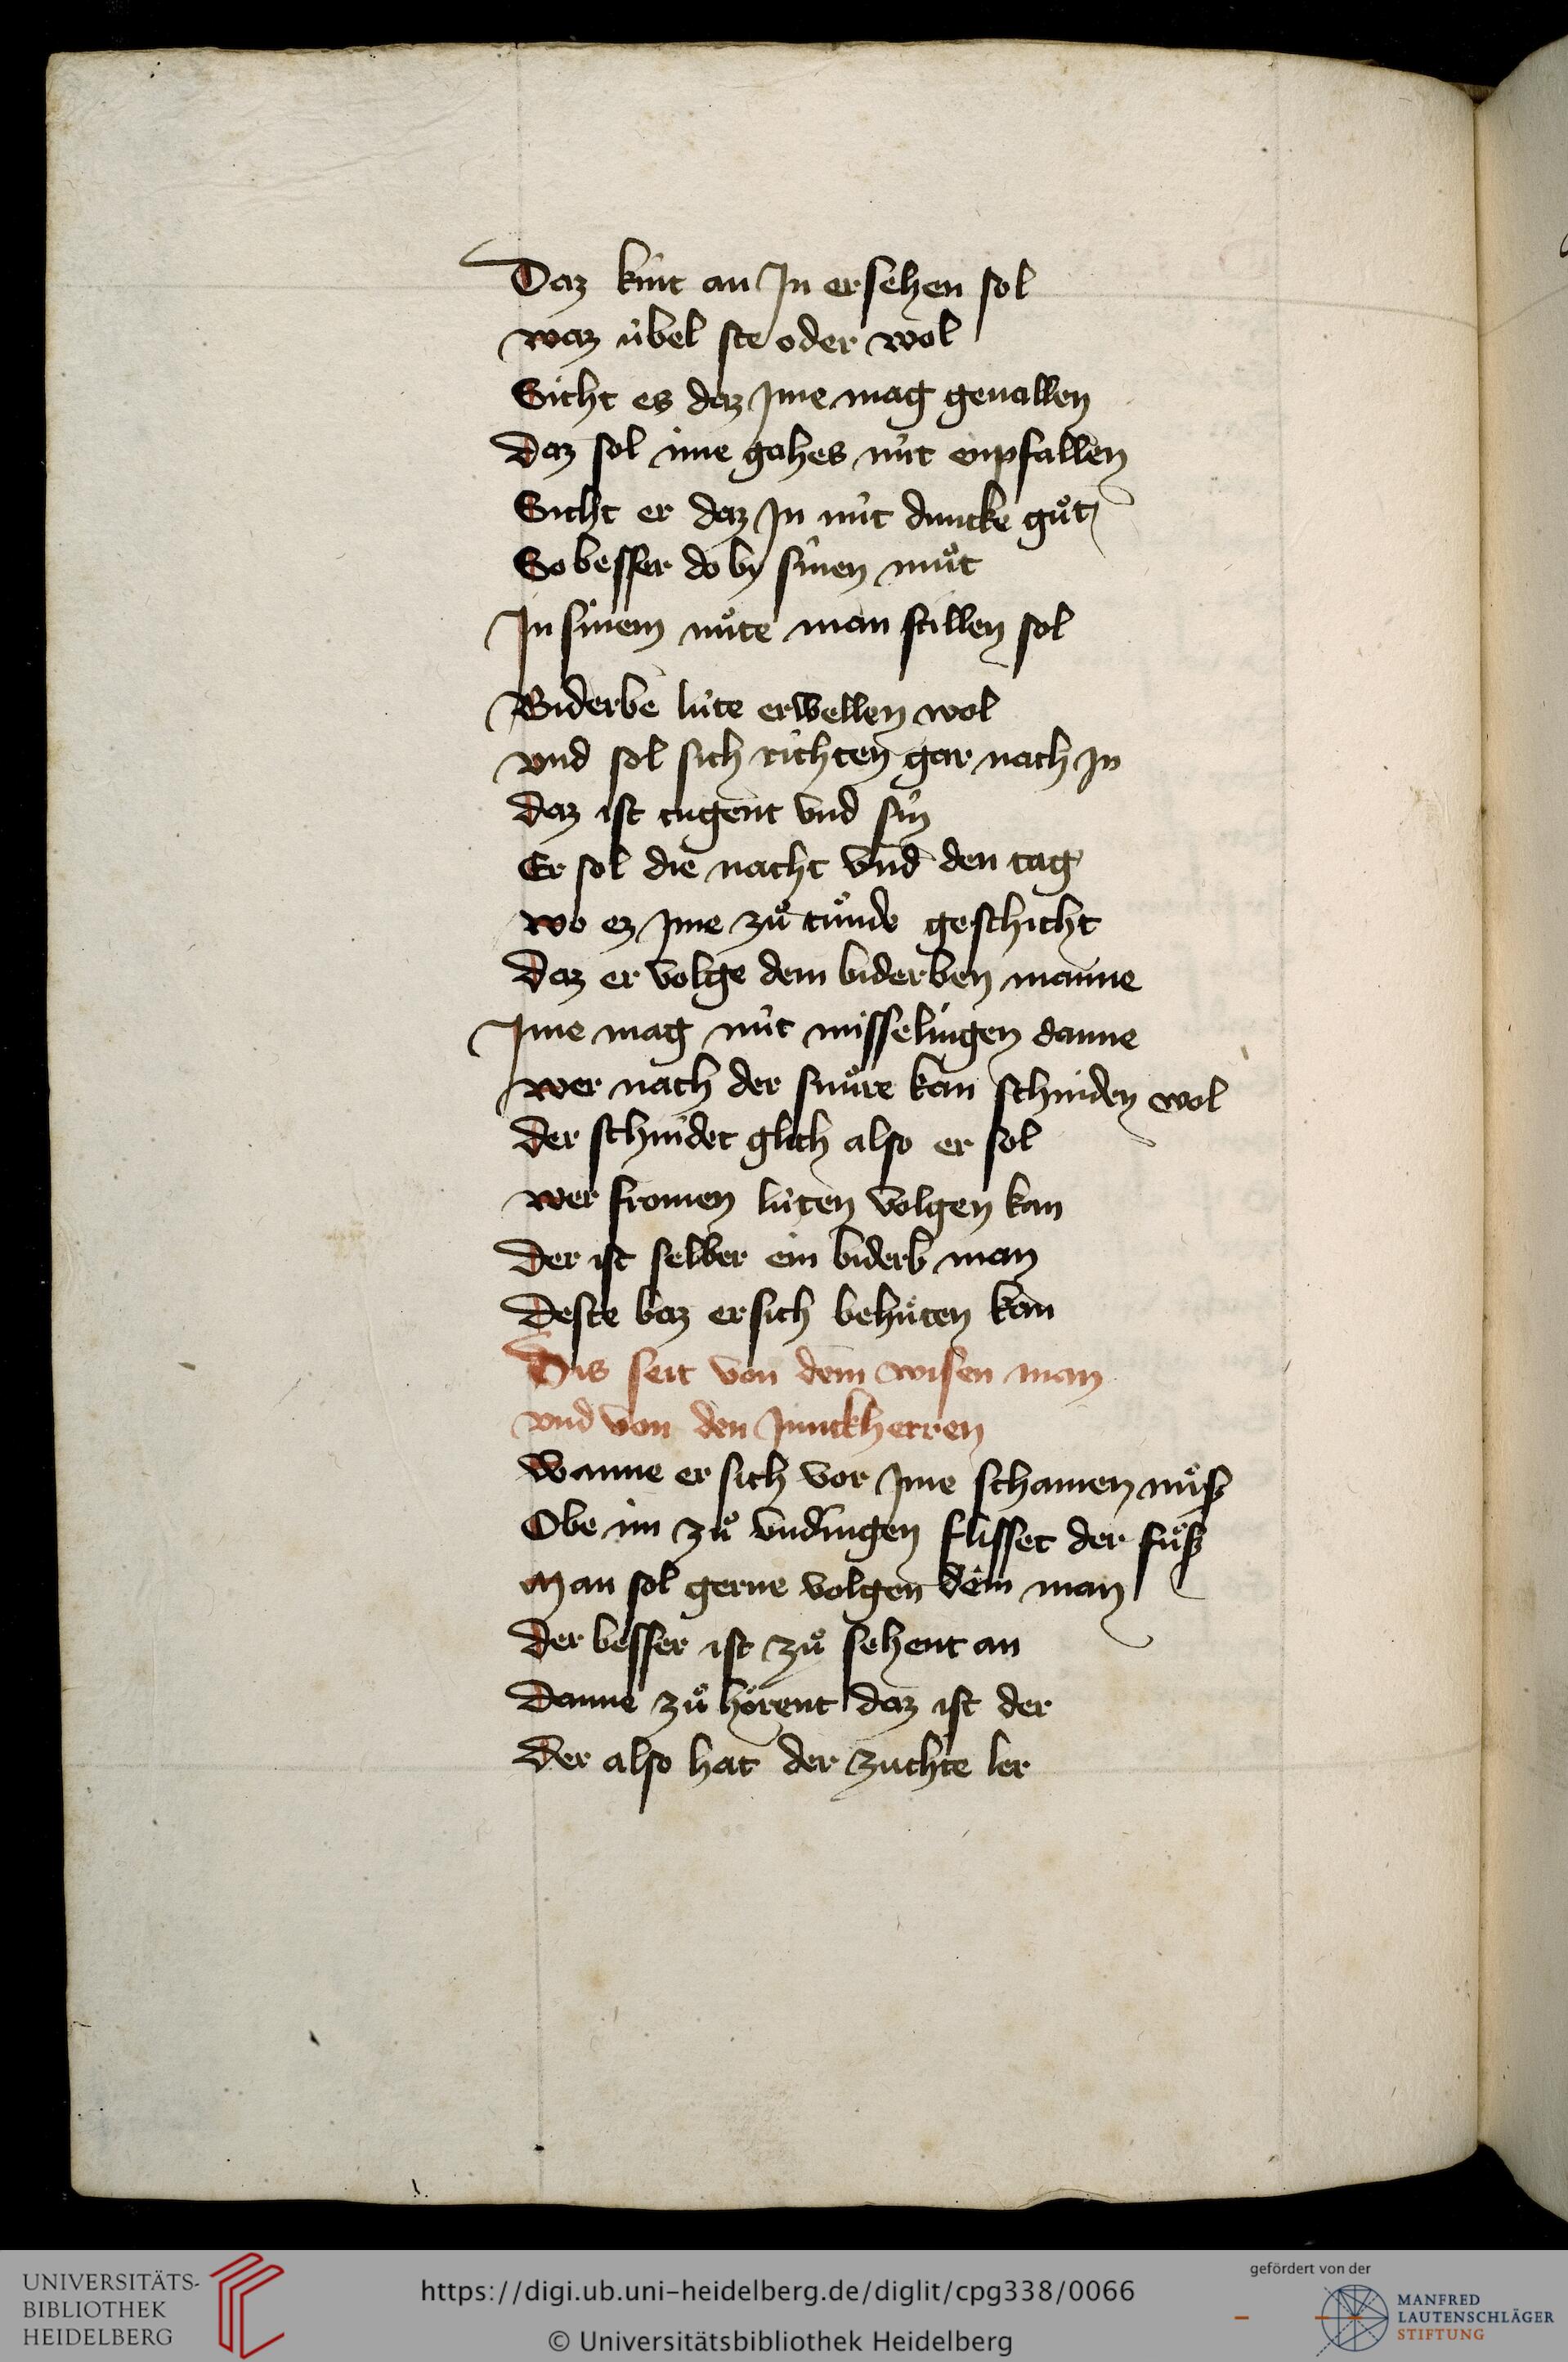 Daz kint an In ersehen sol
waz übel ste oder wol
Sicht es daz Ime mag geuallen
Daz sol ime gahes nüt enpfallen
Sicht er daz In nüt duncke guͦt
So besser do by sinen muͦt
In sinem muͦte man stillen sol
Biderbe lüte erwellen wol
vnd sol sich richten gar nach In
daz ist tugent vnd sin
Er sol die nacht vnd den tag
wo ez Ime zuͦ tuͦnde geschicht
Daz er volge dem biderben manne
Ime mag nüt misselingen danne
wer nach der snuͦre kan schniden wol
der schnidet glich also er sol
wer fromen lüten volgen kan
Der ist selber ein biderb man
Deste baz er sich behüten kan
Dis seit von dem wisen man
vnd von den Junckherren
Wanne er sich vor Ime schamen muͦß
Obe im zuͦ vndingen slisset der fuͦß
Man sol gerne volgen dem man
Der besser ist zuͦ sehent an
Danne zuͦ hörent daz ist der
Der also hat der zuchte ler
UNIVERSITÄTS-
BIBLIOTHEK
HEIDELBERG
https://digi.ub.uni-heidelberg.de/diglit/cpg338/0066
© Universitätsbibliothek Heidelberg
gefördert von der
MANFRED
LAUTENSCHLÄGER
STIFTUNG